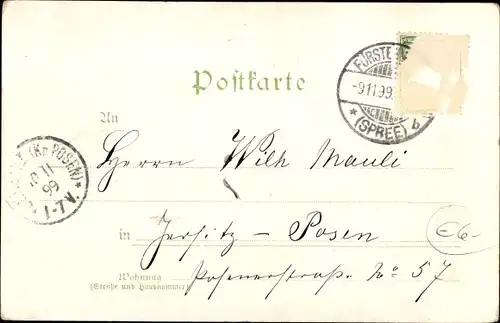 Postkarte
FÜRSTE
-9.11.99.
* (SPREE) b
An
Herrn Wilh Mauli
(Kr. POSEN) *
11
99
1-7V.
in Jersitz - Posen
Wohnung Posenerstraße No 57
(Straße und Hausnummer)